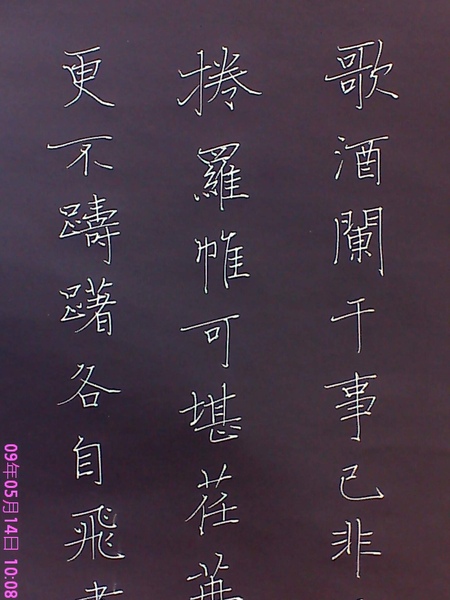 歌酒闌干事已非
捲羅帷可堪荏苒
更不躊躇各自飛
09年05月14日 10:08